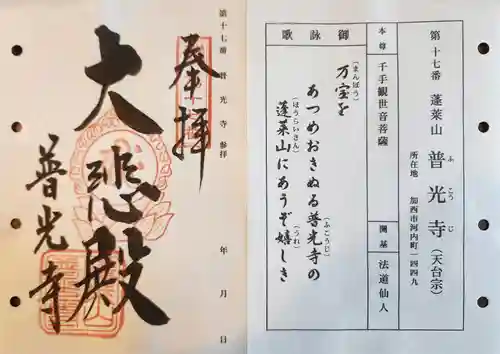 第十七番 蓬莱山 普光寺(天台宗)
ふ こう じ
所在地 加西市河内町一四四九
本尊 千手観世音菩薩
開基 法道仙人
御詠歌
万宝を
(まんぽう)
あつめおきぬる普光寺の
(ふこうじ)
蓬莱山にあうぞ嬉しき
(ほうらいさん)
(うれ)
第十七番 普光寺参拝
奉拝
大悲殿
普光寺
年 月 日